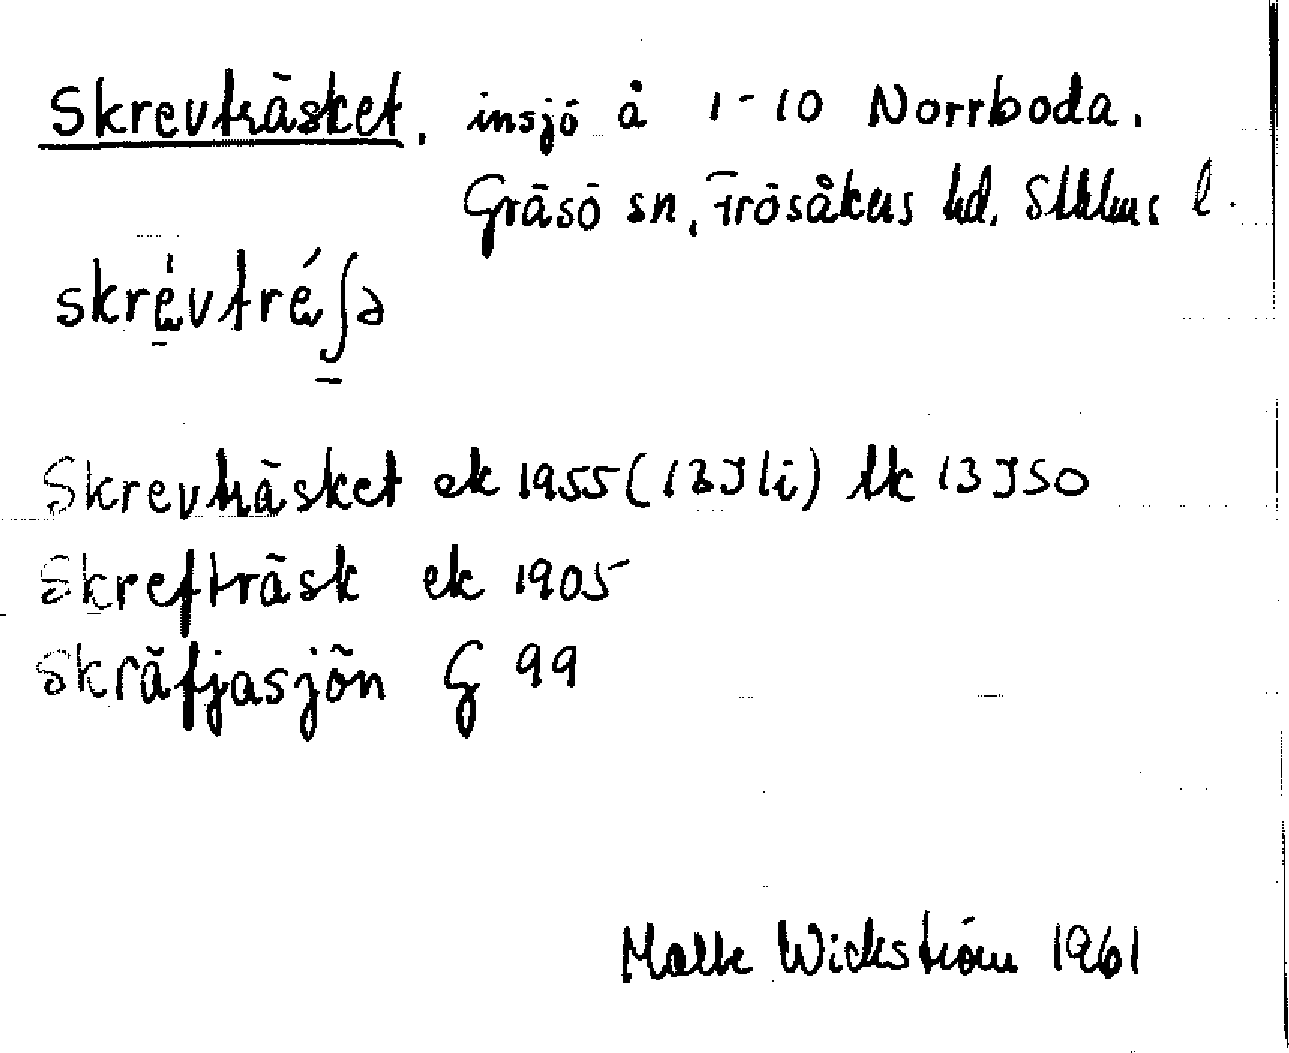 Skrevträsket, insjö å 1-10 Norrboda.
Gräsö sn, Frösåkers hd. Sthlms l.
skrévtréʃə
Skrevträsket ek 1955 (13J1i) tk 13J SO
Skrefträsk ek 1905
Skräfjasjön G 99
Malte Wickström 1961